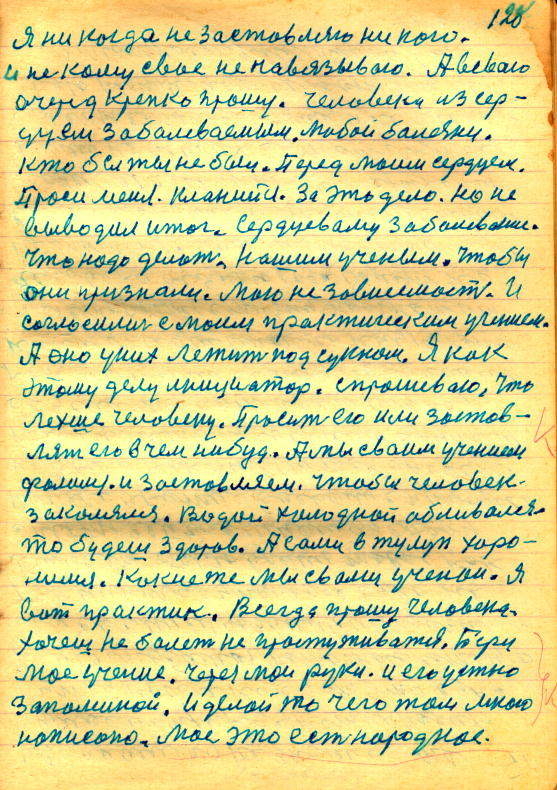 128
Я ни когда не застовляю ни кого.
и не кому свое не навязываю. А всегаю
очеред крепко прошу. Человека из сер-
уем заболеваемым. Любой болезни.
Кто был ты не был. Перед моим сердцем.
Проси меня. Кланийся. За это дело. Но не
выводил итог. Сердцеваму заболевание.
Что надо делат. Нашим ученым. Чтобы
они признали. Мою не зовисемост. И
согласилис с моим практическим учением.
А оно у них лежит под сукном. Я как
этому делу инициатор. Спрошеваю, что
лехше человеку. Просит его или застов-
лят его в чем нибуд. А мы сваим учением
фолшим. и застовляем. Чтобы человек.
заколялся. Водой холодной обливался.
то будеш здоров. А сами в тулуп хоро-
нимся. Какие же мы свами ученаи. Я
вот практик. Всегда прошу человека.
хочеш не болет не простуживатся. Бери
мое учение. Через мои руки. и его устно
запоминой. И делой то чего там много
нописоно. Мое это ест народное.